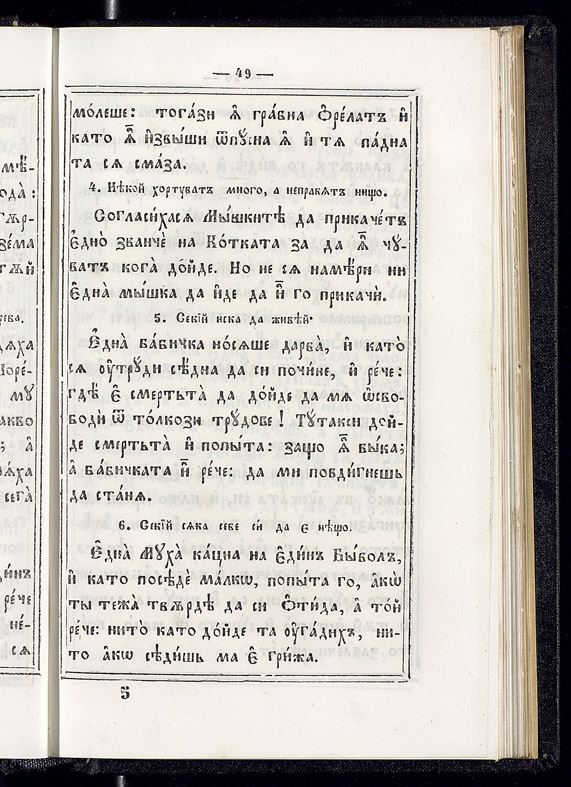 — 49 —
мо́леше: тога́зи ѧ̑ гра́вна Ѻре́латъ и҆
като ѧ҆̀ и҆звы́ши ѿпꙋ́сна ѧ҆ и҆ тѧ па́дна
та сѧ сма́за.
4. Нѣкой хортуватъ много, а неправѧтъ нищо.
Согласи́хасѧ Мы́шкитѣ да прикаче́тъ
є҆дно̀ зва́нче на Ко́тката за да ѧ҆̀ чꙋ́-
ватъ кога̀ до́йде. Но не сѧ намѣ́ри ни
є҆дна̀ мы́шка да и҆́де да и҆̀ го прикачѝ.
5. Секій иска да живѣй·
Є҆дна̀ ба́бичка но́сѧше дарва̀, и҆ като̀
сѧ ᲂу҆трꙋди сѣ́дна да си почи́не, и҆ ре́че:
гдѣ̀ є҆ смертьта̀ да до́йде да мѧ ѡ҆сво-
бодѝ ѿ то́лкози трꙋ́дове! Тꙋ́такси до́й-
де смертьта̀ и҆ попы́та: защо ѧ҆̀ вы́ка;
а҆ ба́бичката и҆̀ ре́че: да ми повди́гнешь
да ста́нѧ.
6. Секій сѧка себе си́ да є нѣщо.
Є҆дна̀ Мꙋха̀ ка́цна на Є҆ди́нъ Бы́волъ,
и҆ като посѣ́дѐ ма́лкѡ, попы́та го, а҆́кѡ
ты тежа̀ твѫрдѣ да си Ѻти́да, а҆ то́й
ре́че: нито като до́йде та ᲂу҆га́дихъ, ни-
то а҆́кѡ сѣди́шь ма є҆ гри́жа.
5
мѣ-
ода̀:
гѫр-
зе́ма
сева.
дѧха
мꙋ
акво
; а҆
нѧха
сега̀
ди́нъ
ре́че
не́-
сѧ